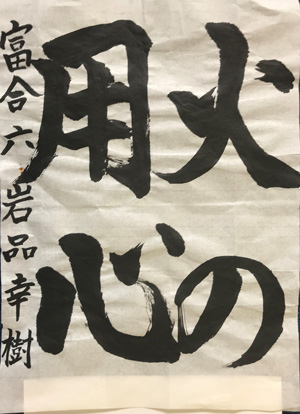 火の
用心
富合六 岩品幸樹